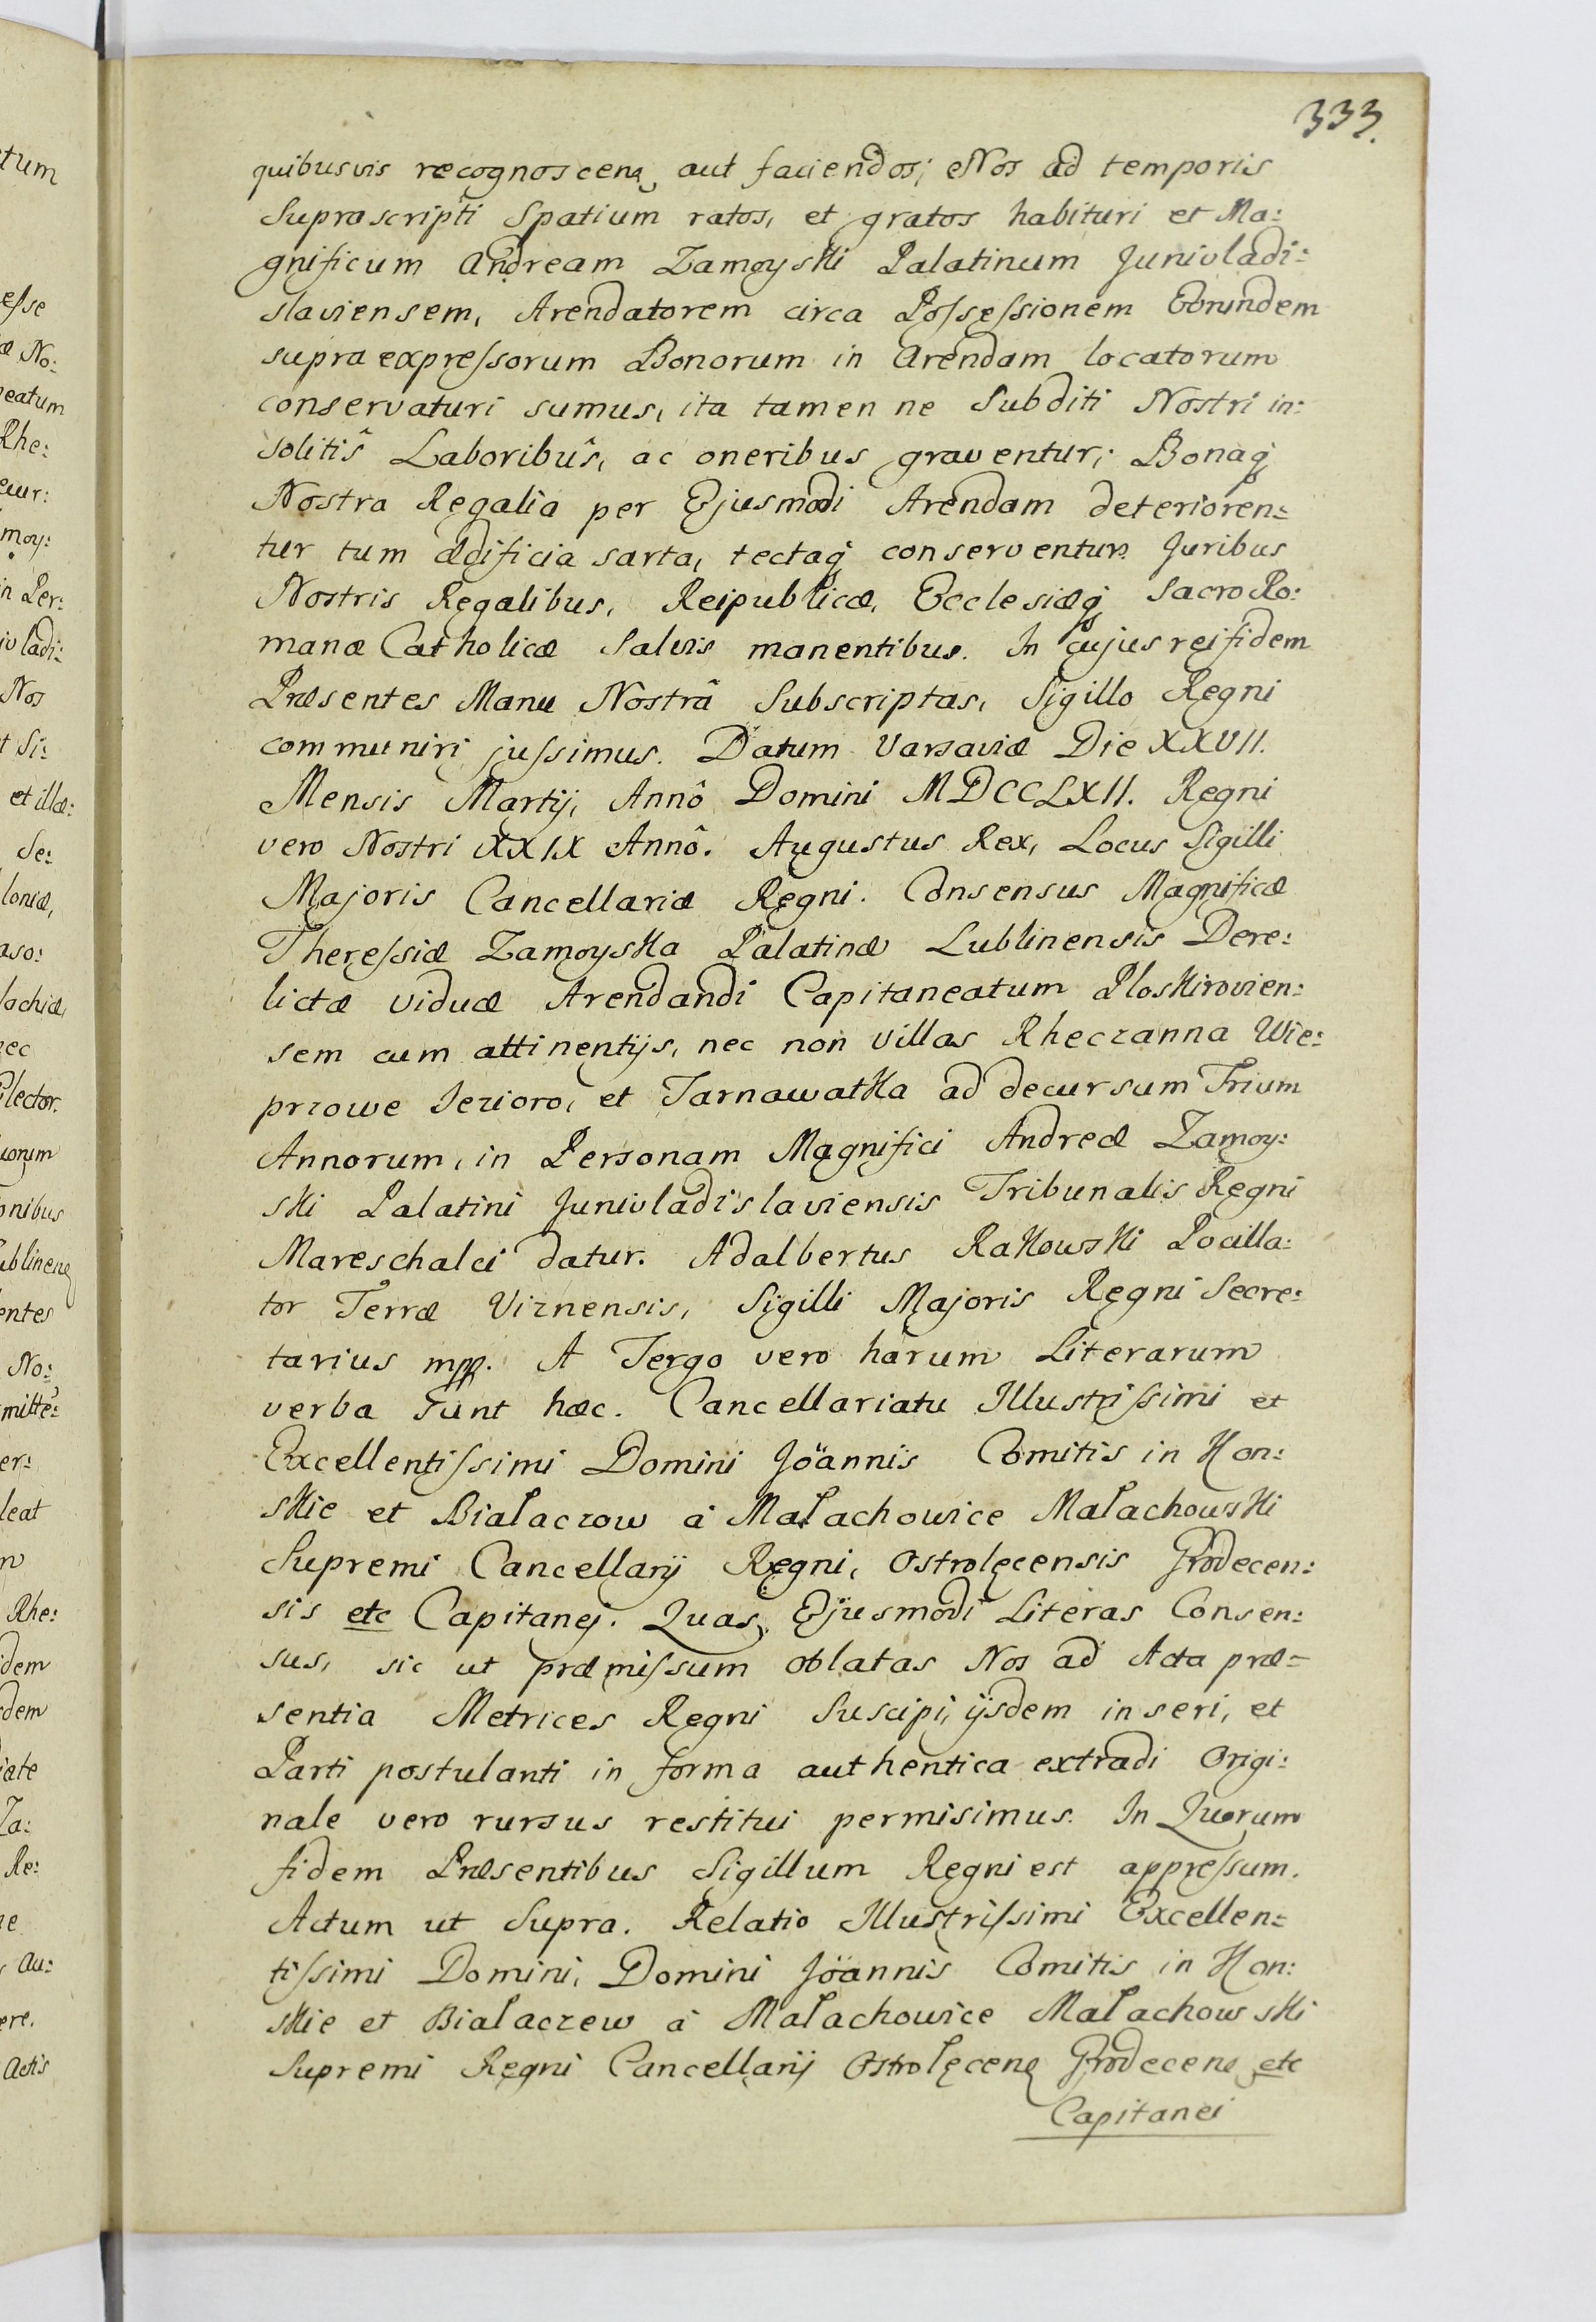 333.
quibusvis recognoscenq aut faciendos; Nos ad temporis
Suprascripti Spatium ratos, et gratos habituri et Ma:
gnificum Andream Zamoyski Palatinum Junivladi:
slaviensem, Arendatorem circa Possessionem Eorundem
supra expressorum Bonorum in Arendam locatorum
conservaturi sumus, ita tamen ne Subditi Nostri in:
solitîs Laboribûs, ac oneribus graventur; Bonaq
Nostra Regalia per Ejusmodi Arendam deterioren:
tur tum ædificia sarta, tectaq conserventur. Juribus
Nostris Regalibus, Reipublicæ, Ecclesiæq Sacro Ro:
manæ Catholicæ Salvis manentibus. In cujus rei fidem
Præsentes Manu Nostrâ Subscriptas, Sigillo Regni
communiri jussimus. Datum Varsaviæ Die XXVII.
Mensis Martij, Annô Domini MDCCLXII. Regni
vero Nostri XXIX Annô. Augustus Rex, Locus Sigilli
Majoris Cancellariæ Regni. Consensus Magnificæ
Theressiæ Zamoyska Palatinæ Lublinensis Dere:
lictæ viduæ Arendandi Capitaneatum Ploskirovien:
sem cum attinentijs, nec non Villas Rheczanna Wie:
przowe Jezioro, et Tarnawatka ad decursum Trium
Annorum, in Personam Magnifici Andreæ Zamoy:
ski Palatini Junivladislaviensis Tribunalis Regni
Mareschalci datur. Adalbertus Rakowski Pocilla:
tor Terræ Viznensis, Sigilli Majoris Regni Secre:
tarius mpp. A Tergo vero harum Literarum
verba sunt hæc. Cancellariatu Illustrissimi et
Excellentissimi Domini Jöannis Comitis in Kon:
skie et Bialaczow à Małachowice Małachowski
Supremi Cancellarij Regni, Ostrolęcensis Grodecen:
sis etc Capitanej. Quas Ejusmodi Literas Consen:
sus, sic ut præmissum oblatas Nos ad Acta præ=
sentia Metrices Regni Suscipi, ijsdem inseri, et
Parti postulanti in forma authentica extradi Origi:
nale vero rursus restitui permisimus. In Quorum
fidem Præsentibus Sigillum Regni est appressum.
Actum ut Supra. Relatio Illustrissimi Excellen=
tissimi Domini, Domini Jöannis Comitis in Kon:
skie et Białaczew à Małachowice Małachowski
Supremi Regni Cancellarij Ostrolęcenq Grodecenq etc
Capitanei